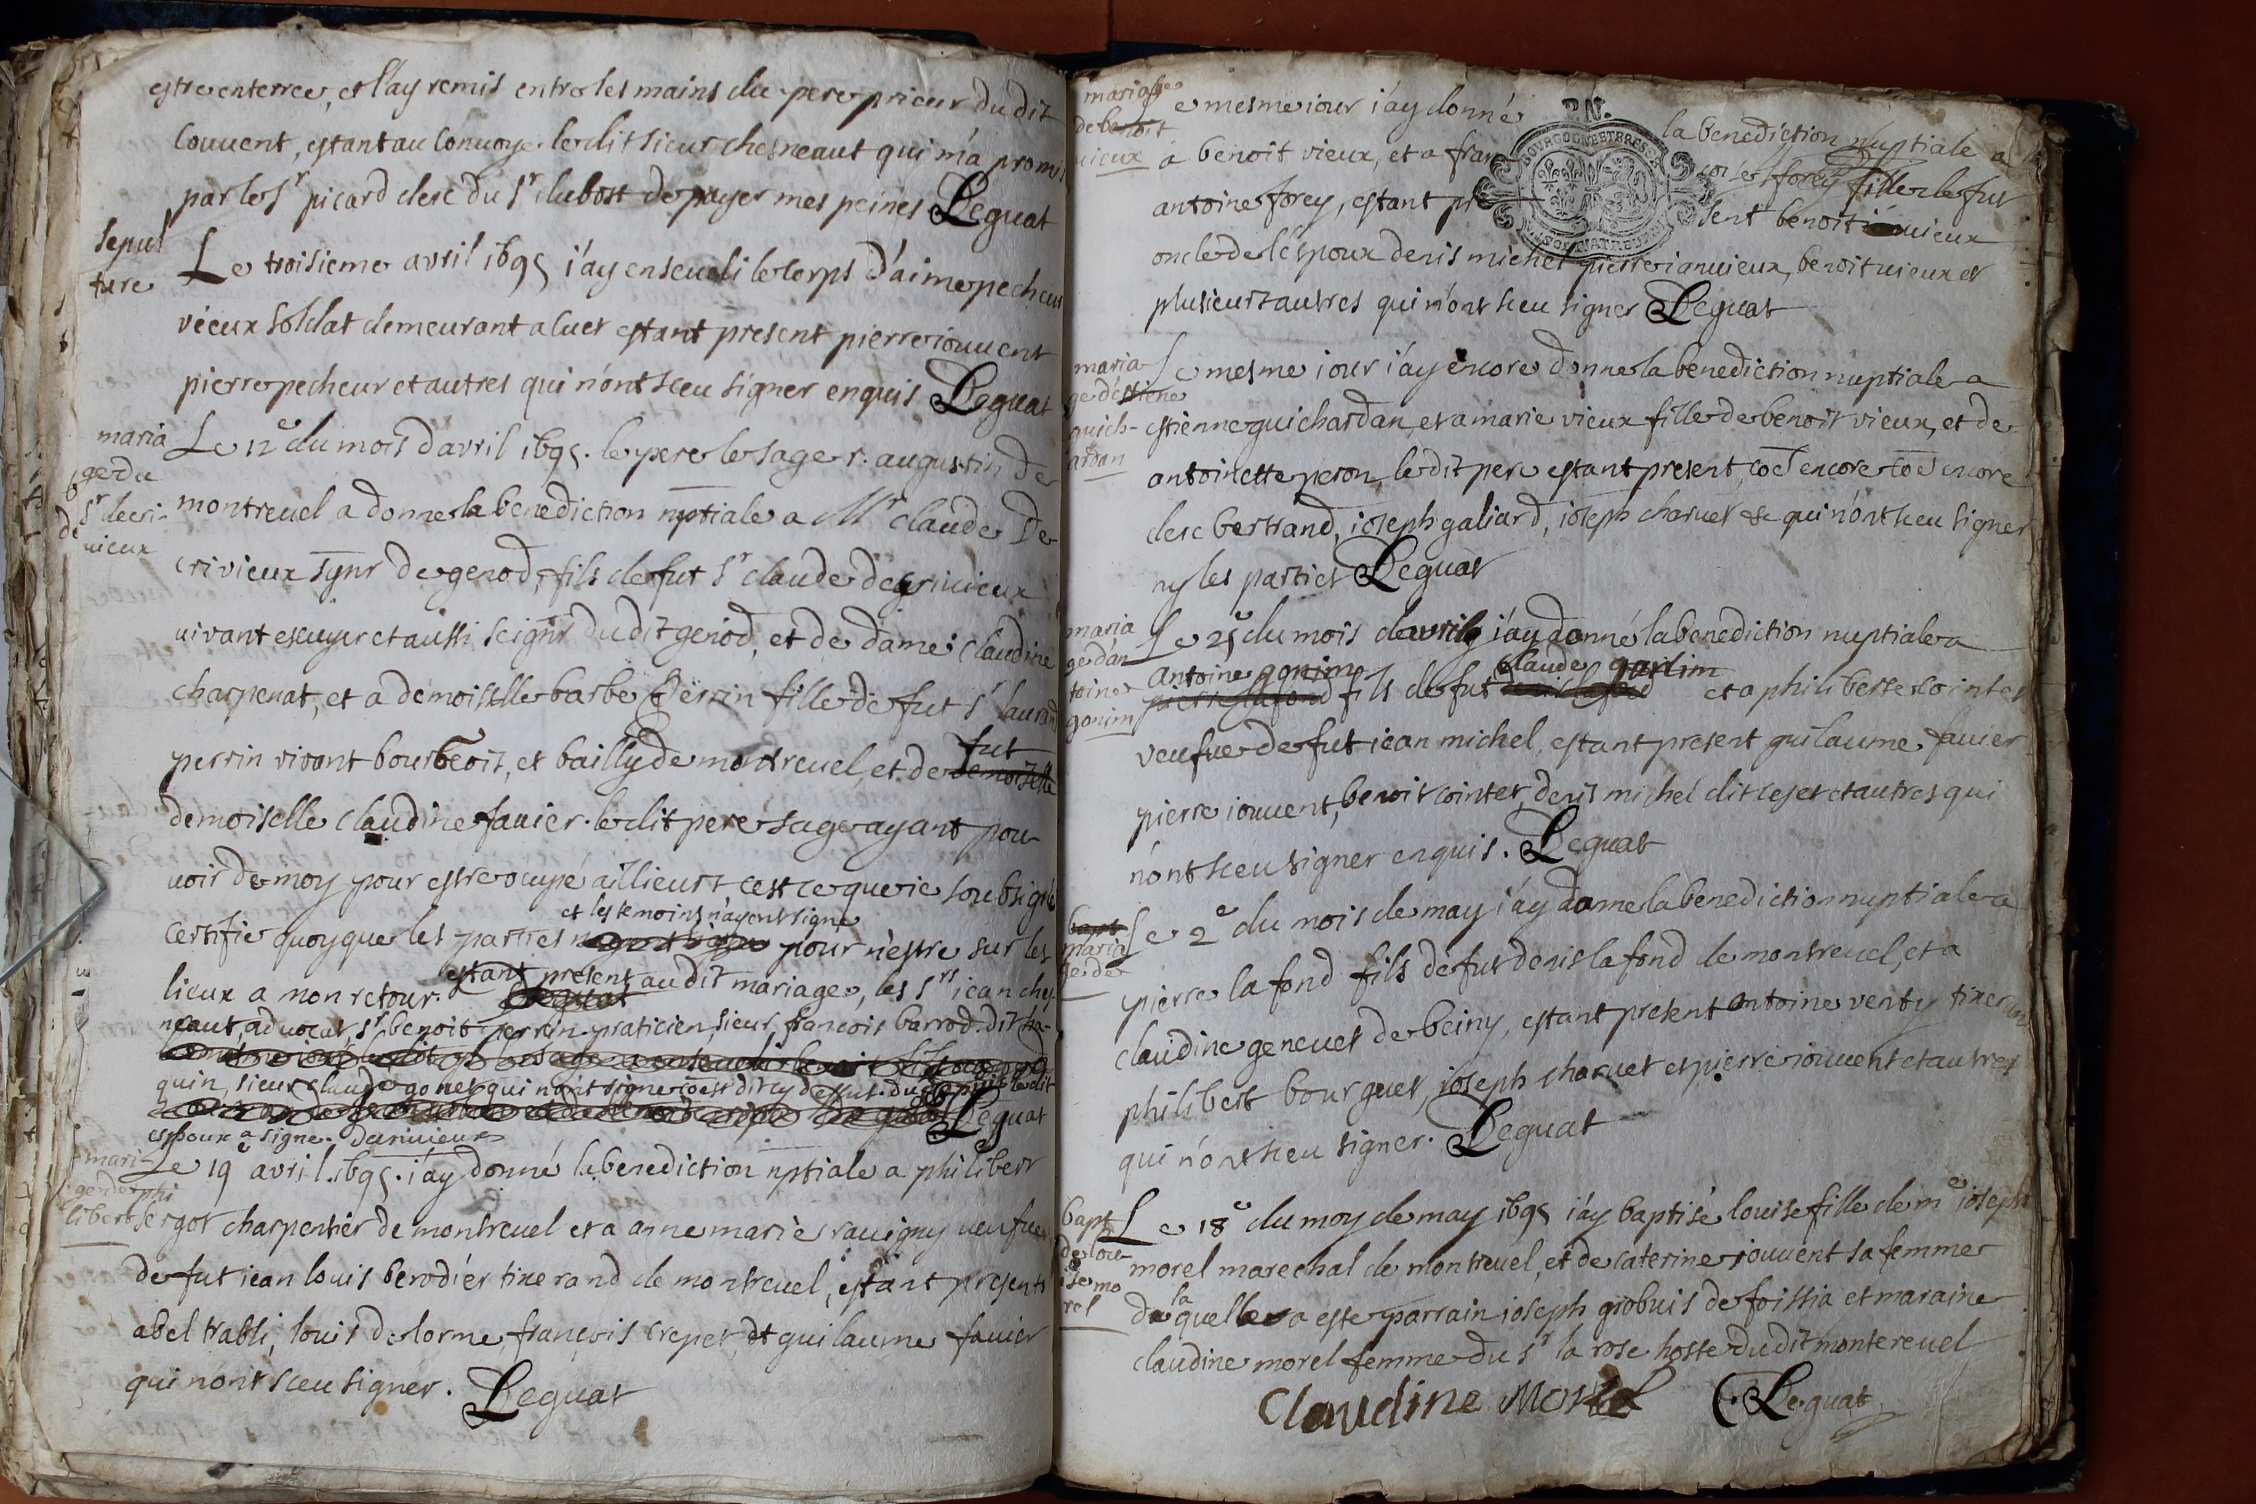 estre enterree, et l'ay remis entre les mains du pere prieur du dit
couvent, estant au convoye le dit sieur chesneaut qui m'a promis
par le Sr picard clerc du Sr dubost de payer mes peines Leguat
sepul
ture
Le troisieme avril 1695 i'ay enseveli le corps d'aime pecheur
vieux soldat demeurant a cuet estant present pierre iouvent
pierre pecheur et autres qui n'ont sceu signer enquis Leguat
maria
ge du
Sr decri-
vieux
Le 12e du mois d'avril 1695. le pere le sage r. augustin de
montrevel a donne la benediction nptiale a Mr claude De
crivieux sgnr de genod, fils de fut Sr claude de crivieux
vivant escuyer et aussi seignr du dit genod, et de dame Claudine
charpenat, et a demoiselle barbe Perrin fille de fut Sr laurand
perrin vivant bourgeois, et bailly de montrevel, et de fut demoiselle
demoiselle claudine favier. le dit pere sage ayant pou-
voir de moy pour estre ocupé aillieurs c'est ce que ie soubsigné
et les temoins n'ayent signe
certifie quoyque les parties pour n'estre sur les
estant present au dit mariage, les Srs iean ches-
lieux a mon retour. Leguat
neaut advocat, Sr benoit perrin praticien sieur francois barrod. dit
quin, sieur claude gonet qui n'ont signe coe est dit cy dessus. le dit
Leguat
espoux a signe. Decrivieux
mari-
ge de phi
libert sergot
Le 19e avril 1695. i'ay donné la benediction nptiale a philibert
sergot charpentier de montrevel et a anne marie ravigny veufve
de fut iean louis berodier tixerand de montrevel, estant presents
abel trabli, louis delorme, françois crepet, et guilaume favier
qui n'ont sceu signer. Leguat
mariage
de benoit
vieux
Le mesme iour i'ay donné la benediction nuptiale a
a benoit vieux, et a forey fille de fut
antoine forey, estant present benoit vieux
oncle de l'espoux denis michel pierre ianvieux, benoit vieux et
plusieurs autres qui n'ont sceu signer Leguat
maria-
ge d'estiene
guich-
ardan
Le mesme iour i'ay encore donne la benediction nuptiale a
estienne guichardan, et a marie vieux fille de benoit vieux, et de
antoinette peron, le dit pere estant present, coe encore coe encore
clerc bertrand, ioseph galiard, ioseph charvet &c qui n'ont sceu signer
ny les parties Leguat
maria
ge d'an
toine
gonim
Le 25e du mois d'avril i'ay donné la benediction nuptiale a
antoine gonime fils de fut claude et a philiberte cointet
veufve de fut iean michel, estant present guilaume favier
pierre iouvent, benoit cointet, denis michel dit cejet et autres qui
n'ont sceu signer enquis. Leguat
bapt
maria
ge de
Le 2e du mois de may i'ay donne la benediction nuptiale a
pierre la fond fils de fut denis la fond de montrevel, et a
claudine genevet de beiny, estant present antoine venty tixeran
philibert bourguet, ioseph charvet et pierre iouvent et autres
qui n'ont sceu signer. Leguat
bapt
de lou-
ise mo
rel
Le 18e du moy de may 1695 i'ay baptisé louise fille de me ioseph
morel marechal de montrevel, et de caterine jouvent sa femme
de la quelle a este parrain ioseph grobuis de foissia et maraine
claudine morel femme du Sr la rose hoste du dit monterevel
Claudine Morel Leguat